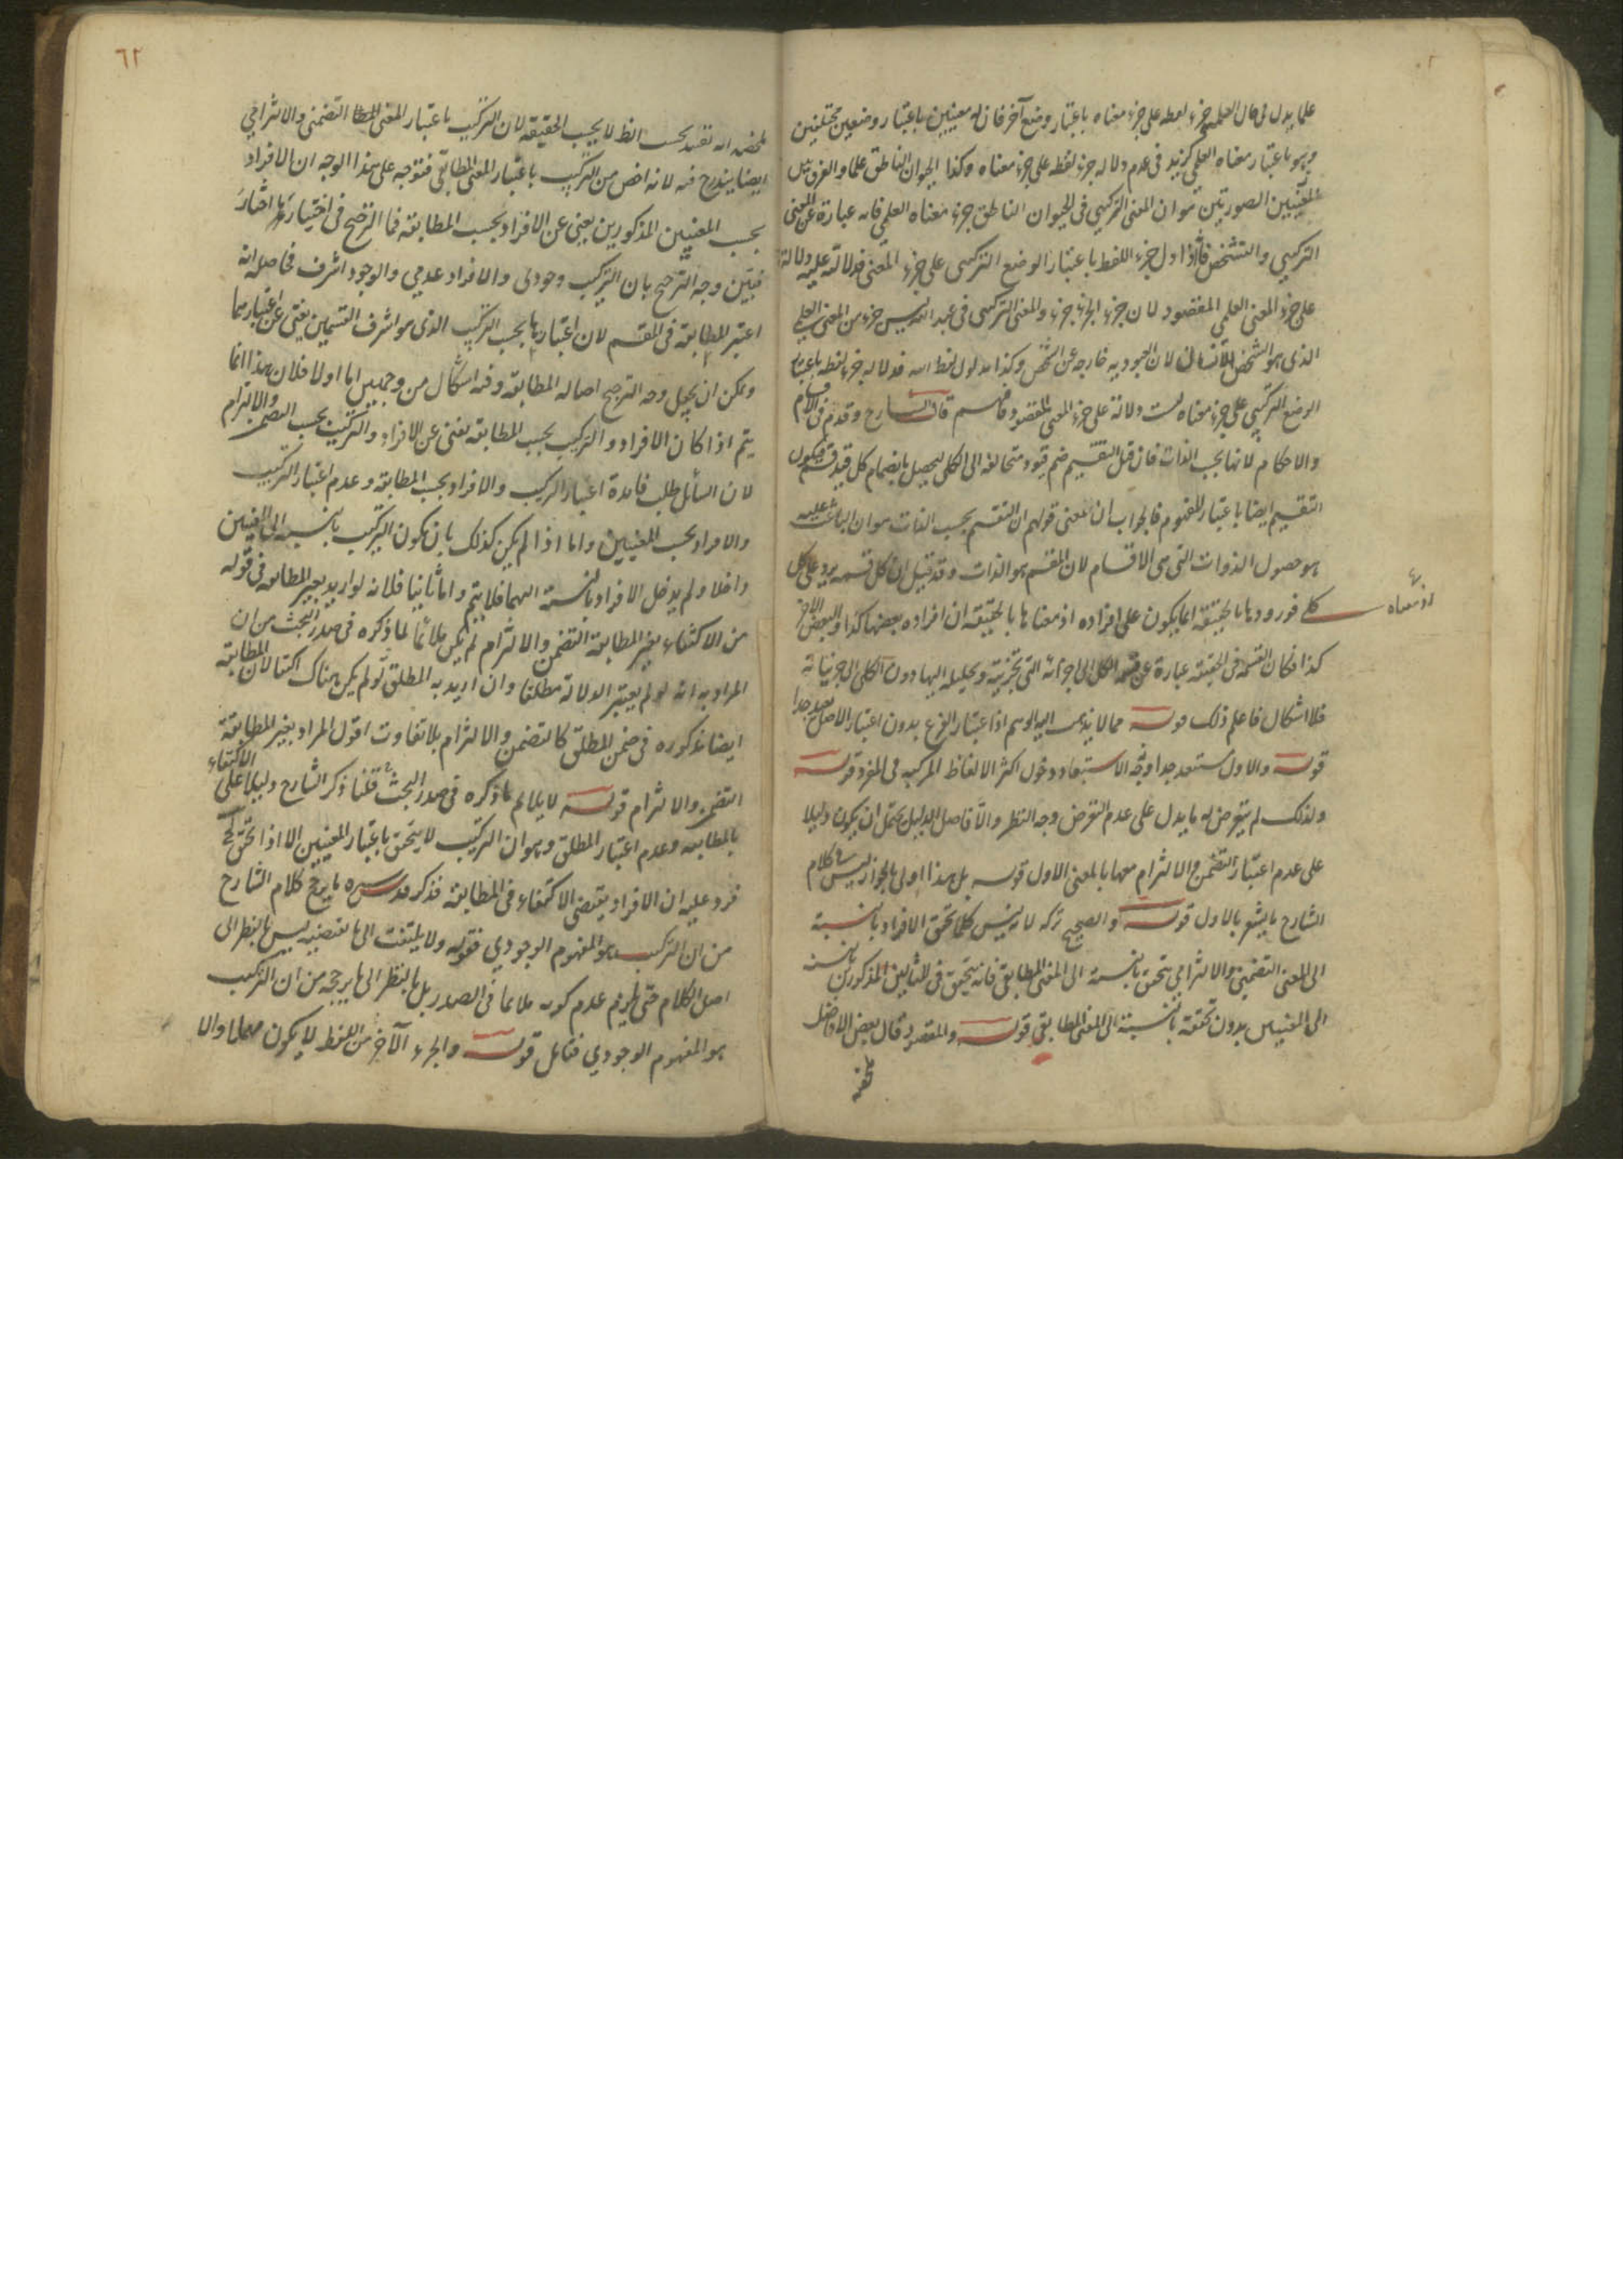 علما يدل في حال العلمية جزء لفظه على جزء معناه باعتبار وضع آخر فان له معنيين باعتبار وضعين مختلفين
وهو باعتبار معناه العلمي كزيد في عدم دلالة جزء لفظه على جزء معناه وكذا الحيوان الناطق علما والفرق بين
الصورتين هو ان المعنى التركيبي في الحيوان الناطق جزء معناه العلمي فانه عبارة عن المعنى
التركيبي والتشخص فاذا دل جزء اللفظ باعتبار الوضع التركيبي على جزء المعنى فدلالته عليه دلالة
على جزء المعنى العلمي المقصود لان جزء الجزء جزء والمعنى التركيبي في عبد الله ليس جزء من المعنى العلمي
الذي هو الشخص الانساني لان العبودية خارجة عن الشخص وكذا مدلول لفظ الله فدلالة جزء لفظه باعتبار
الوضع التركيبي على جزء معناه ليست دلالة على جزء المعنى المقصود فافهم قال الشارح وقدم في الاقسام
والاحكام لانها بحسب الذات فان قيل التقسيم ضم قيود متخالفة الى الكلي ليحصل بانضمام كل قيد قسم فيكون
التقسيم ايضا باعتبار المفهوم فالجواب ان معنى قولهم ان التقسيم بحسب الذات هو ان الباعث عليه
هو حصول الذوات التي هي الاقسام لان المقسم هو الذات وقد قيل ان كل قسمة يرد على كل
كلي فورودها بالحقيقة انما يكون على افراده اذ معناها بالحقيقة ان افراده بعضها كذا والبعض الاخر
اذ معناه
كذا فكان القسمة في الحقيقة عبارة عن قسمة الكل الى اجزائه التي تجزيته وتحليله اليها دون الكلي الى جزئياته
فلا اشكال فاعلم ذلك قوله مما لا يذهب اليه الوهم اذ اعتبار الفرع بدون اعتبار الاصل بعيد جدا
قوله والاول مستبعد جدا وجه الاستبعاد دخول اكثر الالفاظ المركبة في المفرد قوله
ولذلك لم يتعرض له ما يدل على عدم التعرض وجه النظر والا فاصل الدليل يحتمل ان يكون دليلا
على عدم اعتبار التضمن والالتزام معها بالمعنى الاول قوله بل هذا اولى بالجواز ليس في كلام
الشارح ما يشعر بالاول قوله والصحيح تركه لانه ليس كلما تحقق الافراد بالنسبة
الى المعنى التضمني والالتزامي يتحقق بالنسبة الى المعنى المطابقي فانه يتحقق في المثالين المذكورين بالنسبة
الى المعنيين بدون تحققه بالنسبة الى المعنى المطابقي قوله والمقصود قال بعض الافاضل
٦٢
ان تقييد بحسب النظ لا بحسب الحقيقة لان التركيب باعتبار المعنى التضمني والالتزامي
ايضا يندرج فيه لانه اخص من التركيب باعتبار المعنى المطابقي فتوجه على هذا الوجه ان الافراد
بحسب المعنيين المذكورين يغني عن الافراد بحسب المطابقة فما الترجيح في اختيار
فبين وجه الترجيح بان التركيب وجودي والافراد عدمي والوجود اشرف فحاصله انه
اعتبر المطابقة في المقسم لان اعتبارها بحسب التركيب الذي هو اشرف القسمين يغني عن اعتبارهما
ويمكن ان يجعل وجه الترجيح اصالة المطابقة وفيه اشكال من وجهين اما اولا فلان هذا انما
يتم اذا كان الافراد والتركيب بحسب المطابقة يغني عن الافراد والتركيب بحسب التضمن والالتزام
لان السائل طلب فائدة اعتبار التركيب والافراد بحسب المطابقة وعدم اعتبار التركيب
والافراد بحسب المعنيين واما اذا لم يكن كذلك بان يكون التركيب بالنسبة الى المعنيين
داخلا ولم يدخل الافراد بالنسبة اليهما فلا يتم واما ثانيا فلانه لو اريد بغير المطابقة في قوله
من الاكتفاء بغير المطابقة التضمن والالتزام لم يكن ملائما لما ذكره في صدر البحث من ان
المراد به انه لو لم يعتبر الدلالة مطلقا وان اريد به المطلق لم يكن هناك اكتفا لان المطابقة
ايضا مذكورة في ضمن المطلق كالتضمن والالتزام بلا تفاوت اقول المراد بغير المطابقة
التضمن والالتزام قوله لا يلائم ما ذكره في صدر البحث قلنا ذكر الشارح دليلا على الاكتفاء
بالمطابقة وعدم اعتبار المطلق وهو ان التركيب لا يتحقق باعتبار المعنيين الا اذا تحقق
فرد عليه ان الافراد يقتضي الاكتفاء في المطابقة فذكر قدس سره ما يرجح كلام الشارح
من ان التركيب هو المفهوم الوجودي فقوله ولا يلتفت الى ما يقتضيه ليس بالنظر الى
اصل الكلام حتى يلزم عدم كونه ملائما في الصدر بل بالنظر الى ما يرجحه من ان التركيب
هو المفهوم الوجودي فتأمل قوله والجزء الآخر من اللفظ لا يكون مهملا والا